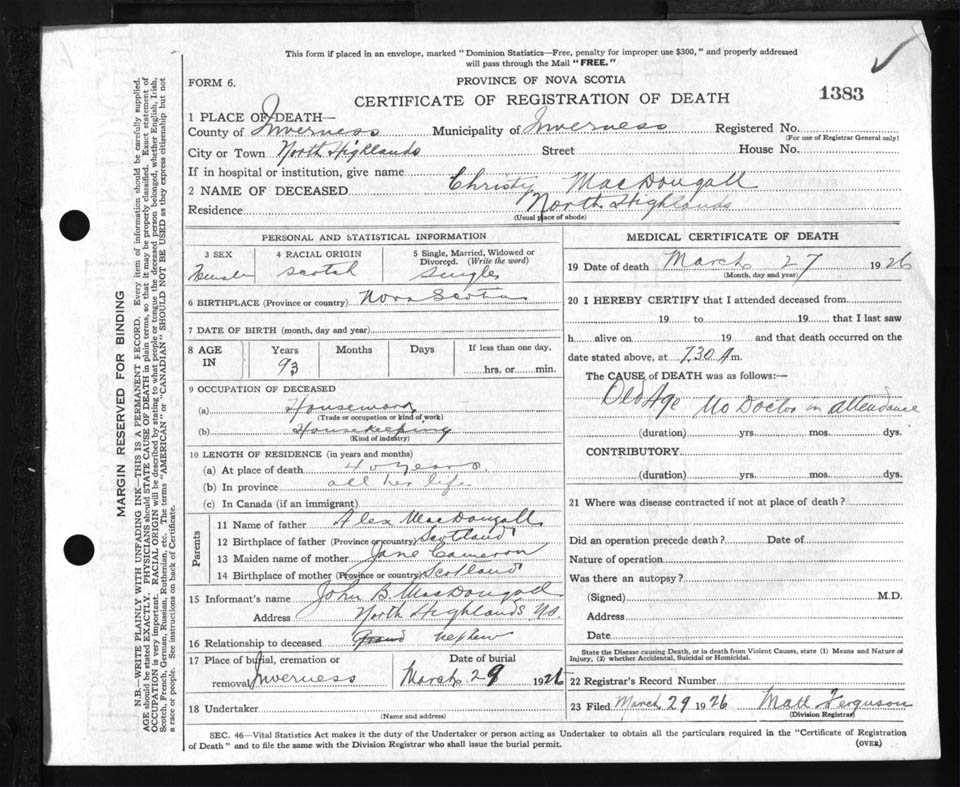 This form if placed in an envelope, marked "Dominion Statistics—Free, penalty for improper use $300," and properly addressed
will pass through the Mail "FREE."
FORM 6.
PROVINCE OF NOVA SCOTIA
CERTIFICATE OF REGISTRATION OF DEATH
1383
1 PLACE OF DEATH—
County of Inverness Municipality of Inverness Registered No.
(For use of Registrar General only)
City or Town North Highlands Street House No.
If in hospital or institution, give name
2 NAME OF DECEASED Christy MacDougall
Residence North Highlands
(Usual place of abode)
PERSONAL AND STATISTICAL INFORMATION
3 SEX 4 RACIAL ORIGIN 5 Single, Married, Widowed or Divorced. (Write the word)
Female Scotch Single
6 BIRTHPLACE (Province or country) Nova Scotia
7 DATE OF BIRTH (month, day and year)
8 AGE IN Years Months Days If less than one day,
93 hrs. or min.
9 OCCUPATION OF DECEASED
(a) Housework
(Trade or occupation or kind of work)
(b) Housekeeping
(Kind of industry)
10 LENGTH OF RESIDENCE (in years and months)
(a) At place of death 40 years
(b) In province all her life
(c) In Canada (if an immigrant)
Parents
11 Name of father Alex MacDougall
12 Birthplace of father (Province or country) Scotland
13 Maiden name of mother Jane Cameron
14 Birthplace of mother (Province or country) Scotland
15 Informant's name John B. MacDougall
Address North Highlands
16 Relationship to deceased Grand nephew
17 Place of burial, cremation or Date of burial
removal Inverness March 29 1926
18 Undertaker
(Name and address)
MEDICAL CERTIFICATE OF DEATH
19 Date of death March 27 1926
(Month, day and year)
20 I HEREBY CERTIFY that I attended deceased from
19 to 19 that I last saw
h alive on 19 and that death occurred on the
date stated above, at 7.30 A m.
The CAUSE of DEATH was as follows:—
Old Age No Doctor in attendance
(duration) yrs. mos. dys.
CONTRIBUTORY
(duration) yrs. mos. dys.
21 Where was disease contracted if not at place of death?
Did an operation precede death? Date of
Nature of operation
Was there an autopsy?
(Signed) M.D.
Address
Date
State the Disease causing Death, or in death from Violent Causes, state (1) Means and Nature of
Injury, (2) whether Accidental, Suicidal or Homicidal.
22 Registrar's Record Number
23 Filed March 29 1926 Ferguson
(Division Registrar)
SEC. 46—Vital Statistics Act makes it the duty of the Undertaker or person acting as Undertaker to obtain all the particulars required in the "Certificate of Registration
of Death" and to file the same with the Division Registrar who shall issue the burial permit.
(OVER)
MARGIN RESERVED FOR BINDING
N.B.—WRITE PLAINLY WITH UNFADING INK—THIS IS A PERMANENT RECORD. Every item of information should be carefully supplied.
AGE should be stated EXACTLY. PHYSICIANS should STATE CAUSE OF DEATH in plain terms, so that it may be properly classified. Exact statement of
OCCUPATION is very important. RACIAL ORIGIN will be described by stating to what people or tongue the deceased person belonged, whether English, Irish,
Scotch, French, German, Russian, Ruthenian, etc. The terms "AMERICAN" or "CANADIAN" SHOULD NOT BE USED as they express citizenship but not
a race or people. See instructions on back of Certificate.